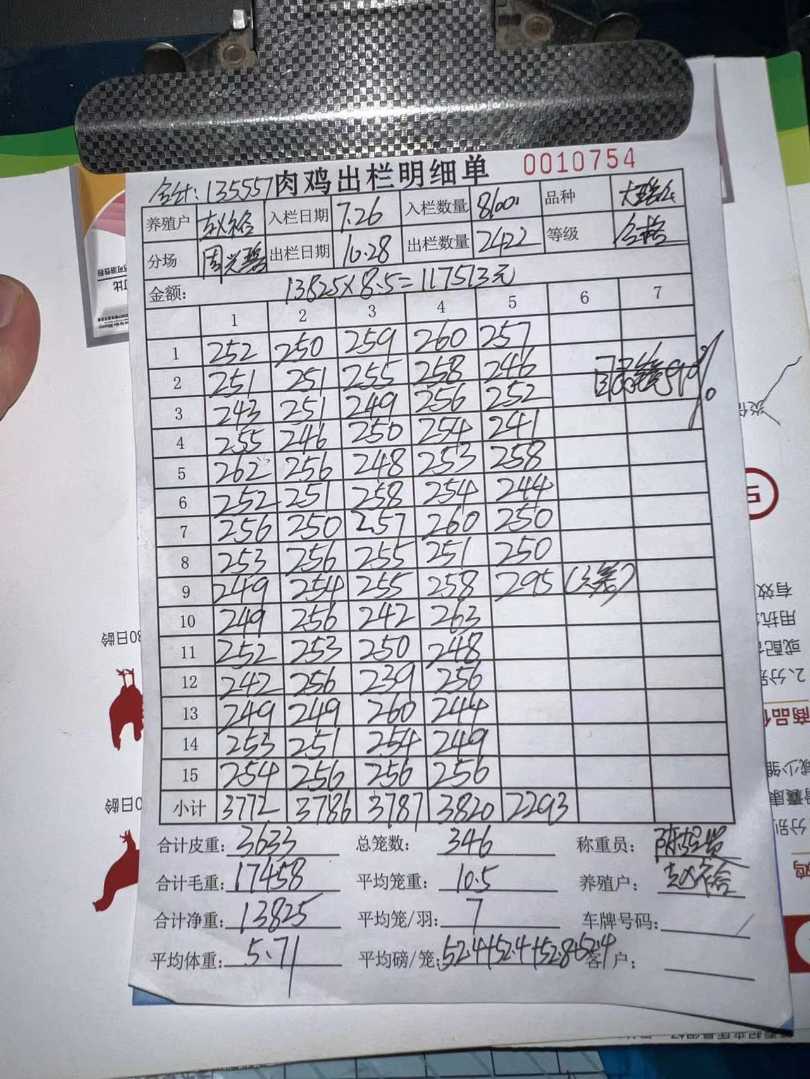 合计:135557 肉鸡出栏明细单 0010754
养殖户 赵裕 入栏日期 7.26 入栏数量 8600 品种
分场 出栏日期 10.28 出栏数量 2422 等级 合格
金额: 13825×8.5=117513元
1 2 3 4 5 6 7
1 252 250 259 260 257
2 251 251 255 258 246
3 243 251 249 256 252
4 255 246 250 254 241
5 262 256 248 253 258
6 252 251 258 254 244
7 256 250 257 260 250
8 253 256 255 251 250
9 249 254 255 258 295
10 249 256 242 263
11 252 253 250 248
12 242 256 239 256
13 249 249 260 244
14 253 251 254 249
15 254 256 256 256
小计 3772 3786 3787 3820 2293
合计皮重: 3633 总笼数: 346 称重员:
合计毛重: 17458 平均笼重: 10.5 养殖户: 赵裕
合计净重: 13825 平均笼/羽: 7 车牌号码:
平均体重: 5.71 平均磅/笼: 52.4+52.4+52.8+52.4 客户:
30日龄
有效
用抗
或配
2、分别
商品
减少雏
分别